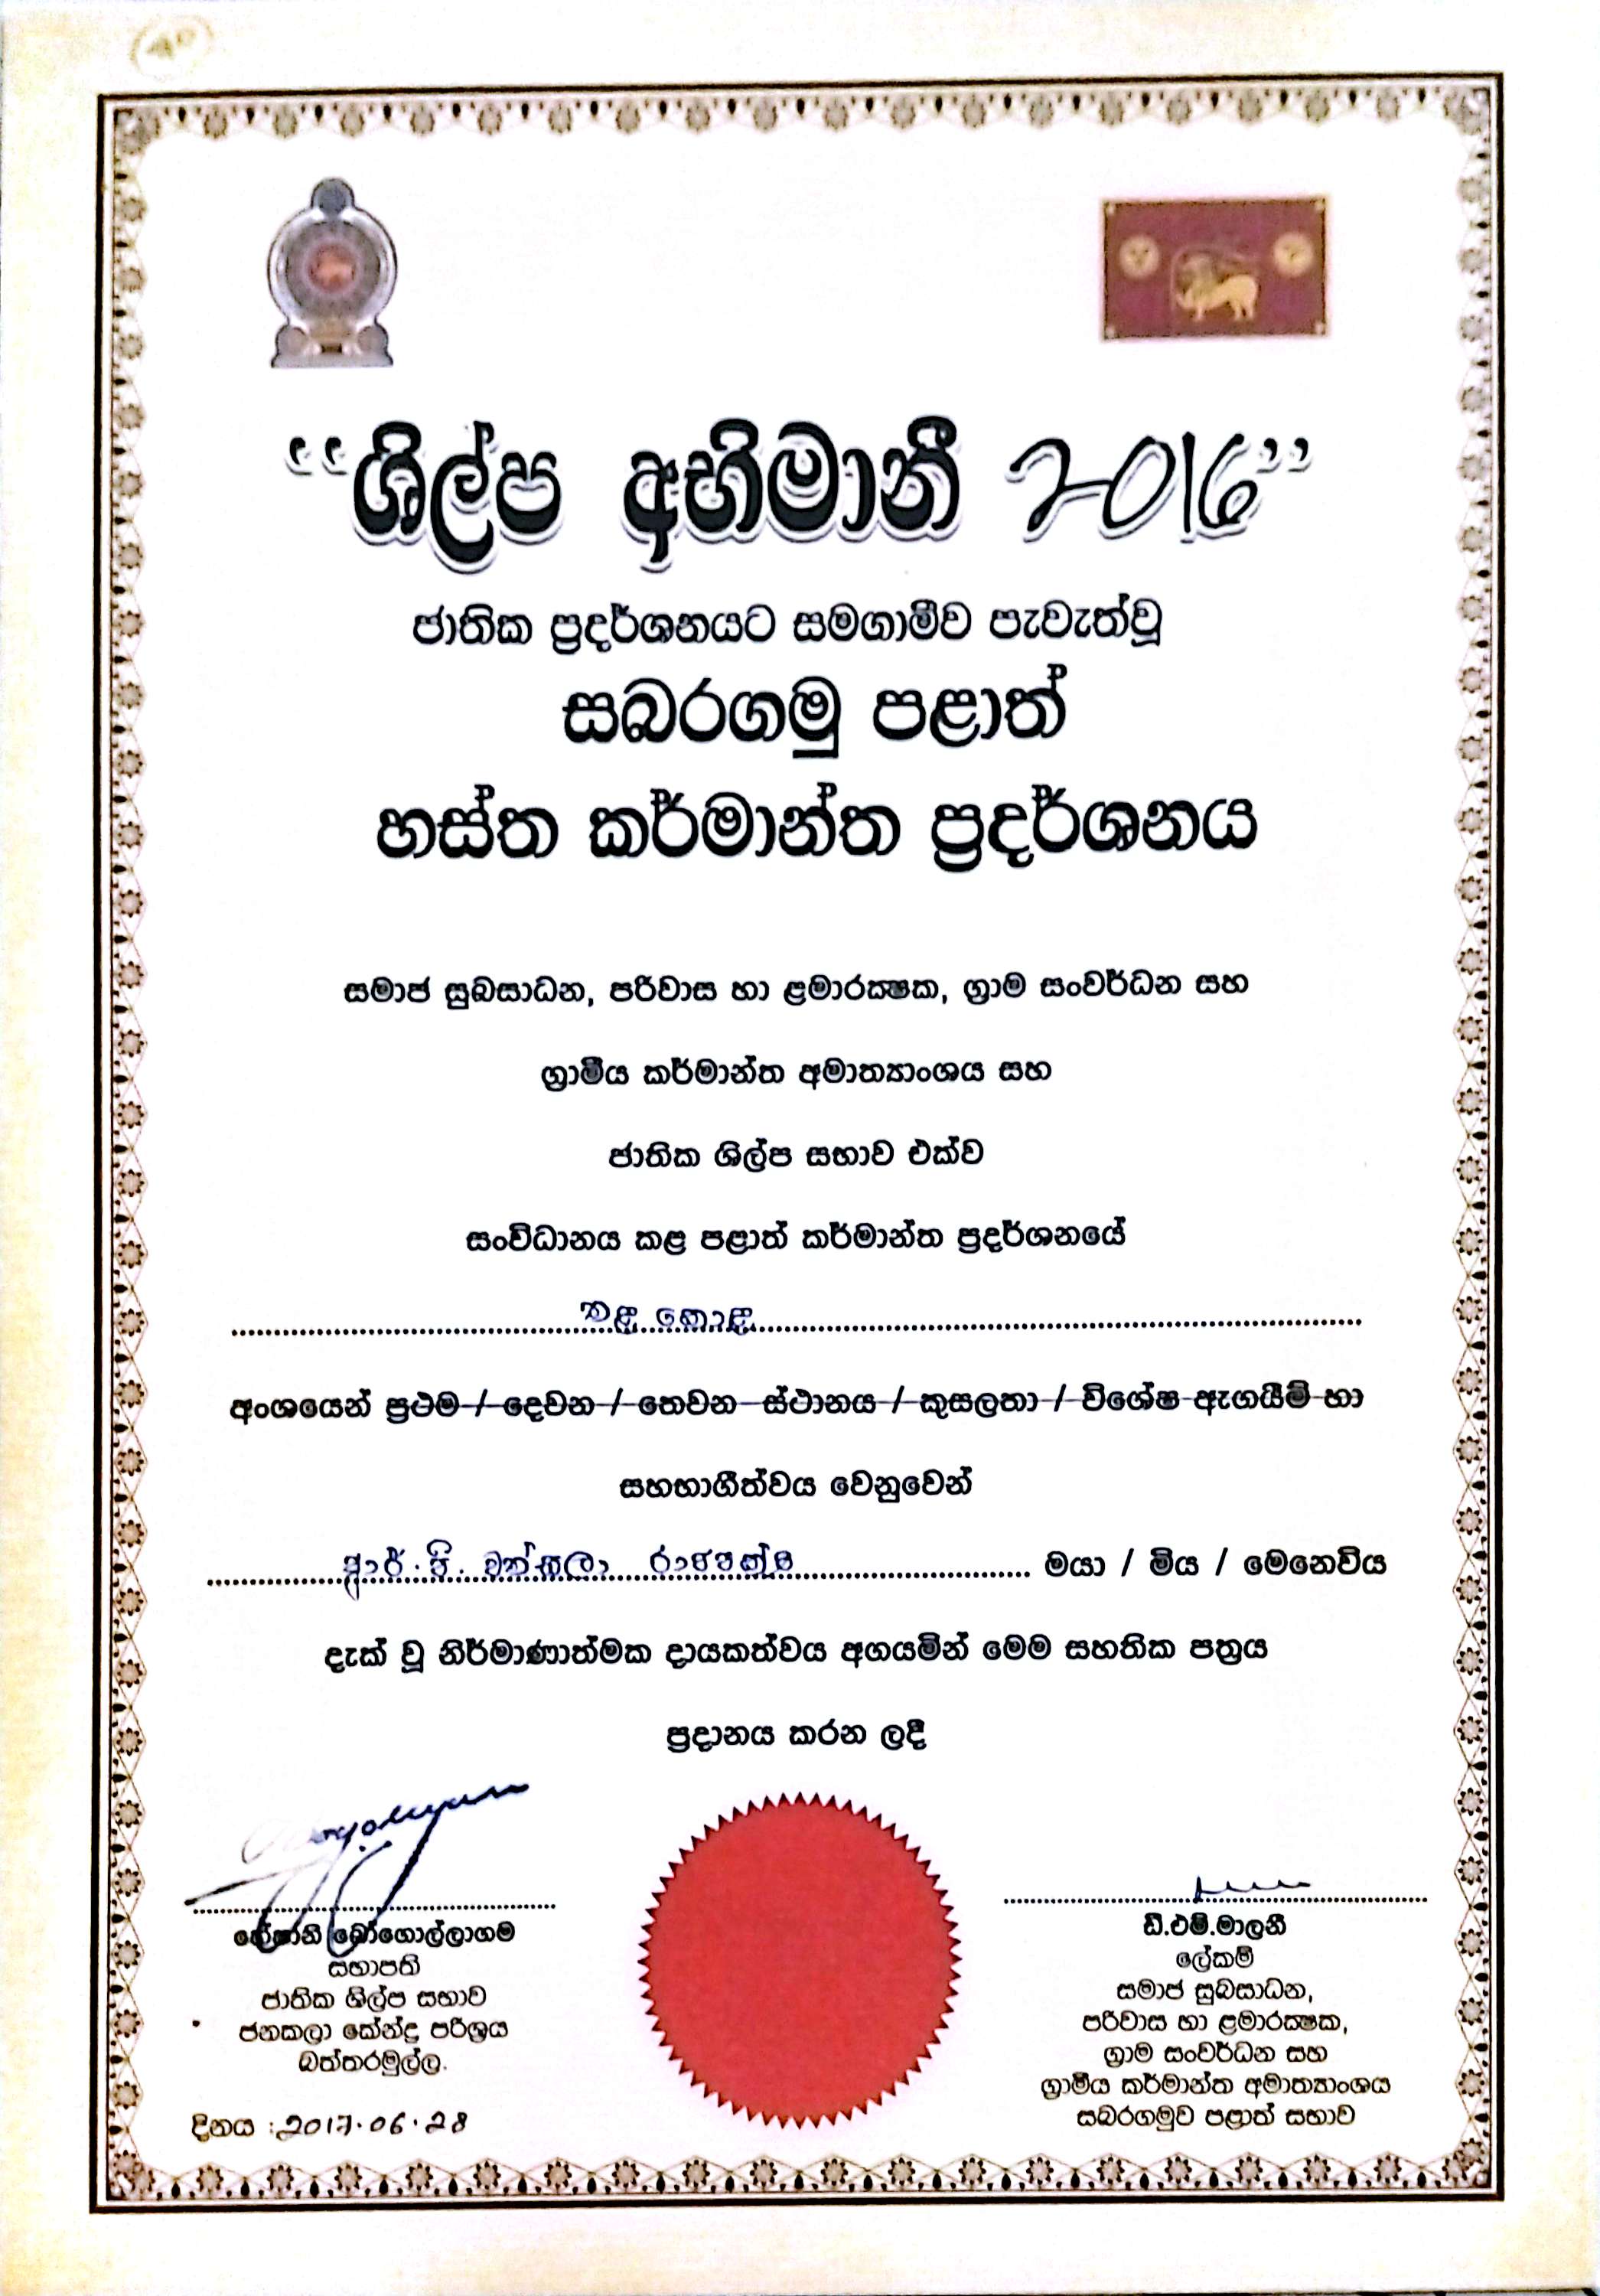 “ශිල්ප අභිමානී 2016”
ජාතික ප්‍රදර්ශනයට සමගාමීව පැවැත්වූ
සබරගමු පළාත්
හස්ත කර්මාන්ත ප්‍රදර්ශනය
සමාජ සුබසාධන, පරිවාස හා ළමාරක්ෂක, ග්‍රාම සංවර්ධන සහ
ග්‍රාමීය කර්මාන්ත අමාත්‍යාංශය සහ
ජාතික ශිල්ප සභාව එක්ව
සංවිධානය කළ පළාත් කර්මාන්ත ප්‍රදර්ශනයේ
අංශයෙන් ප්‍රථම / දෙවන / තෙවන ස්ථානය / කුසලතා / විශේෂ ඇගයීම් හා
සහභාගීත්වය වෙනුවෙන්
ආර්. පී. රාජපක්ෂ මයා / මිය / මෙනෙවිය
දැක් වූ නිර්මාණාත්මක දායකත්වය අගයමින් මෙම සහතික පත්‍රය
ප්‍රදානය කරන ලදී
හේෂානි බෝගොල්ලාගම
සභාපති
ජාතික ශිල්ප සභාව
ජනකලා කේන්ද්‍ර පරිශ්‍රය
බත්තරමුල්ල.
දිනය : 2017.06.28
ඩී.එම්.මාලනී
ලේකම්
සමාජ සුබසාධන,
පරිවාස හා ළමාරක්ෂක,
ග්‍රාම සංවර්ධන සහ
ග්‍රාමීය කර්මාන්ත අමාත්‍යාංශය
සබරගමුව පළාත් සභාව